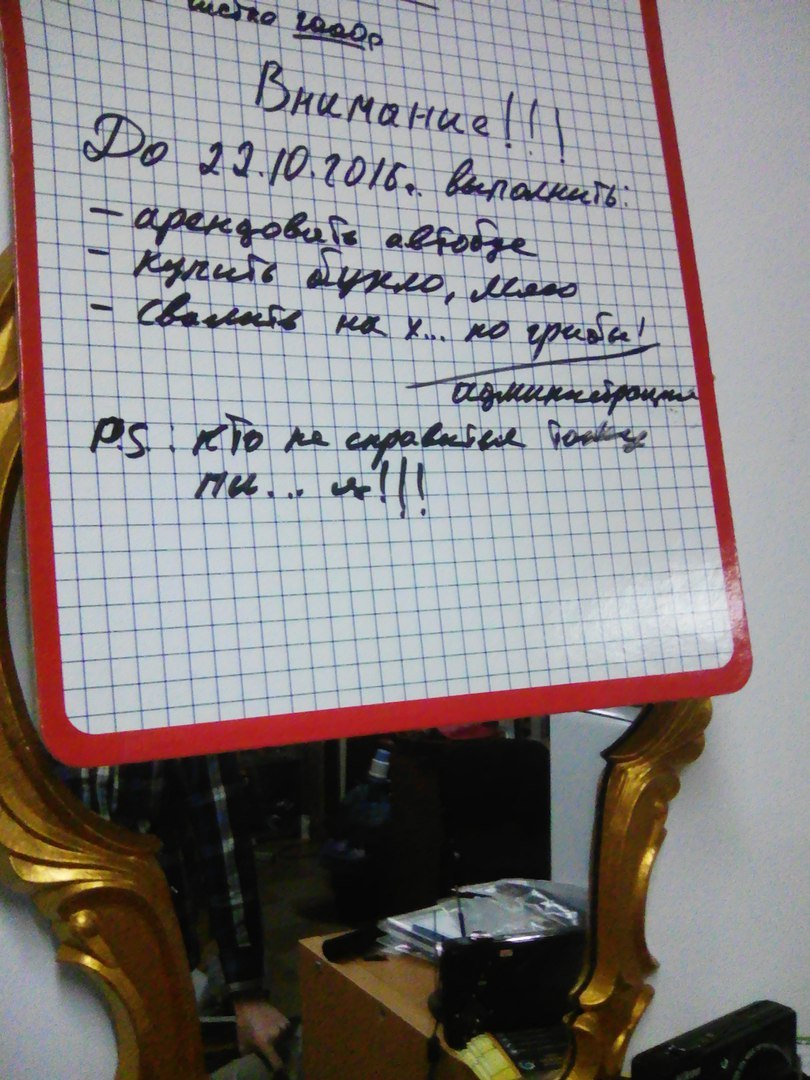 Внимание!!!
До 22.10.2016г. выполнить:
- арендовать автобус
- купить бухло, мясо
- свалить на х... по грибы!
администрация
P.S.: кто не справится тому
пи... я!!!